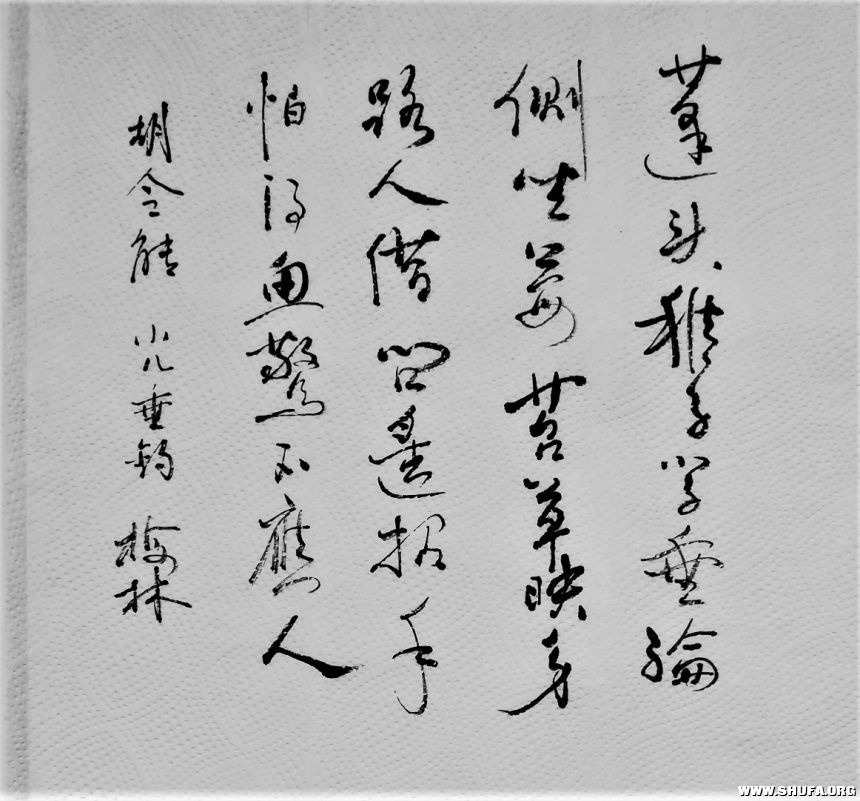 蓬头稚子学垂綸
側坐莓苔草映身
路人借问遙招手
怕得魚驚不應人
胡令能 小儿垂钓 梅林
WWW.SHUFA.ORG